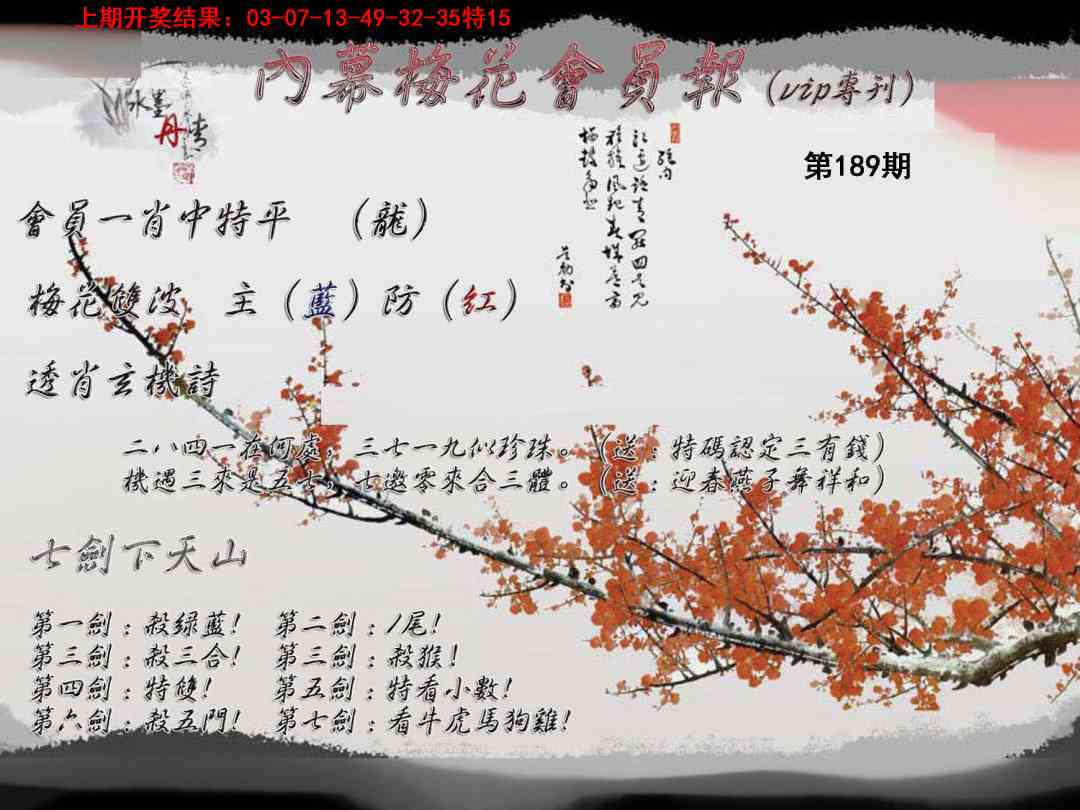 上期开奖结果：03-07-13-49-32-35特15
內幕梅花會員報（vip專刊）
水墨丹青
第189期
會員一肖中特平 （龍）
梅花雙波 主（藍）防（紅）
透肖玄機詩
二八四一在何處，三七一九似珍珠。（送：特碼認定三有錢）
機遇三來是五七，七邀零來合三體。（送：迎春燕子舞祥和）
七劍下天山
第一劍：殺绿藍！ 第二劍：1尾！
第三劍：殺三合！ 第三劍：殺猴！
第四劍：特雙！ 第五劍：特看小數！
第六劍：殺五門！ 第七劍：看牛虎馬狗雞！